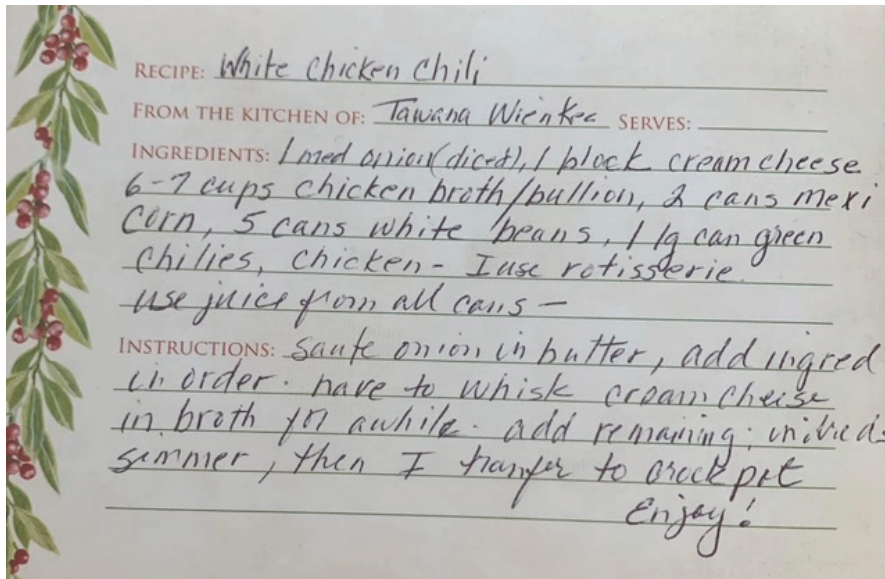 RECIPE: White Chicken Chili
FROM THE KITCHEN OF: Tawana Wienkec SERVES:
INGREDIENTS: 1 med onion (diced), 1 block cream cheese
6-7 cups chicken broth/bullion, 2 cans mexi
corn, 5 cans white beans, 1 lg can green
chilies, chicken - I use rotisserie
use juice from all cans -
INSTRUCTIONS: Saute onion in butter, add ingred
in order. have to whisk cream cheise
in broth for awhile. add remaining;
simmer, then I tranfer to crock pot
Enjoy!